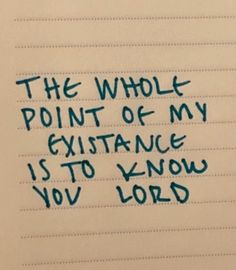 THE WHOLE
POINT OF MY
EXISTANCE
IS TO KNOW
YOU LORD